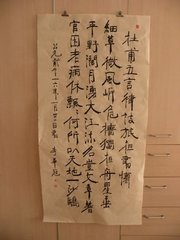 杜甫五言律詩旅夜書懷
細草微風岸危檣獨夜舟星垂
平野闊月湧大江流名豈文章著
官因老病休飄々何所似天地一沙鷗
公元 六年